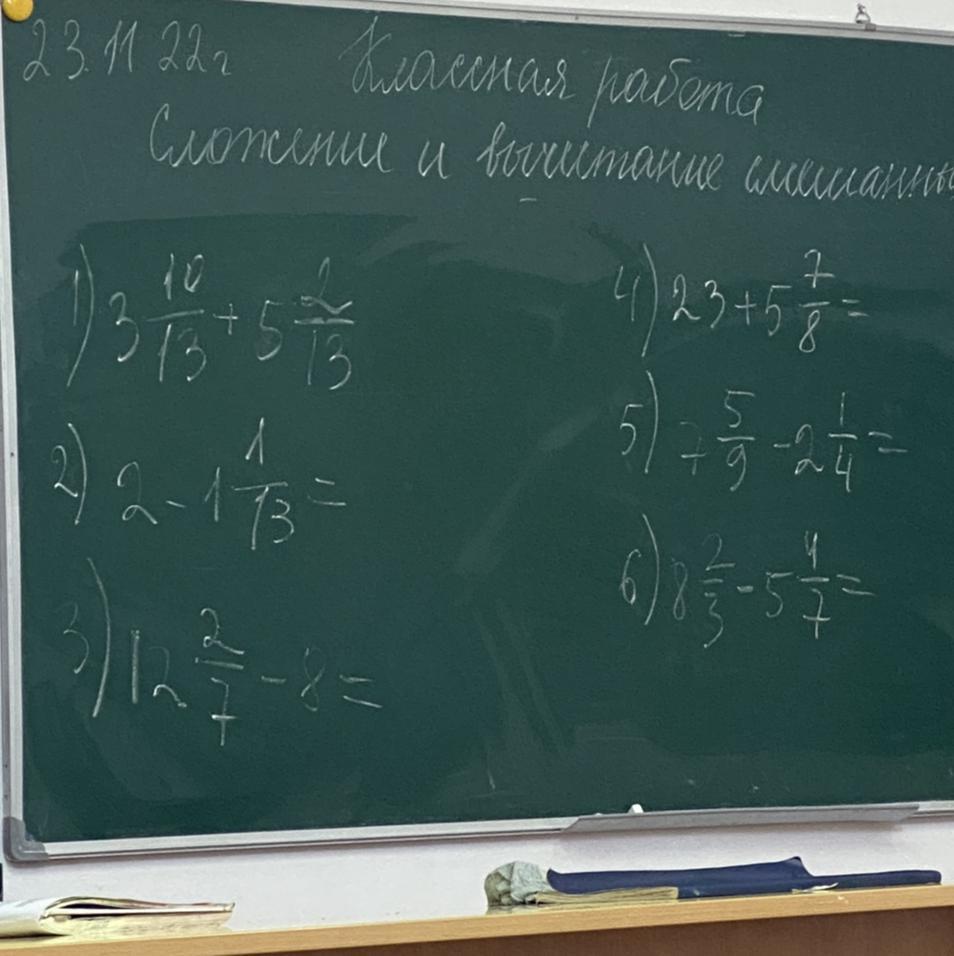 23.11 22г Классная работа
Сложение и вычитание смешанны
1) 3 10/13 + 5 2/13
2) 2 - 1 1/13 =
3) 12 2/7 - 8 =
4) 23 + 5 7/8 =
5) 7 5/9 - 2 1/4 =
6) 8 2/3 - 5 4/7 =